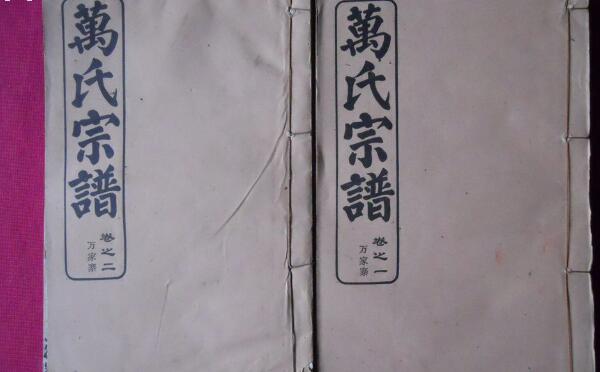 萬氏宗譜
卷之一
万家寨
萬氏宗譜
卷之二
万家寨